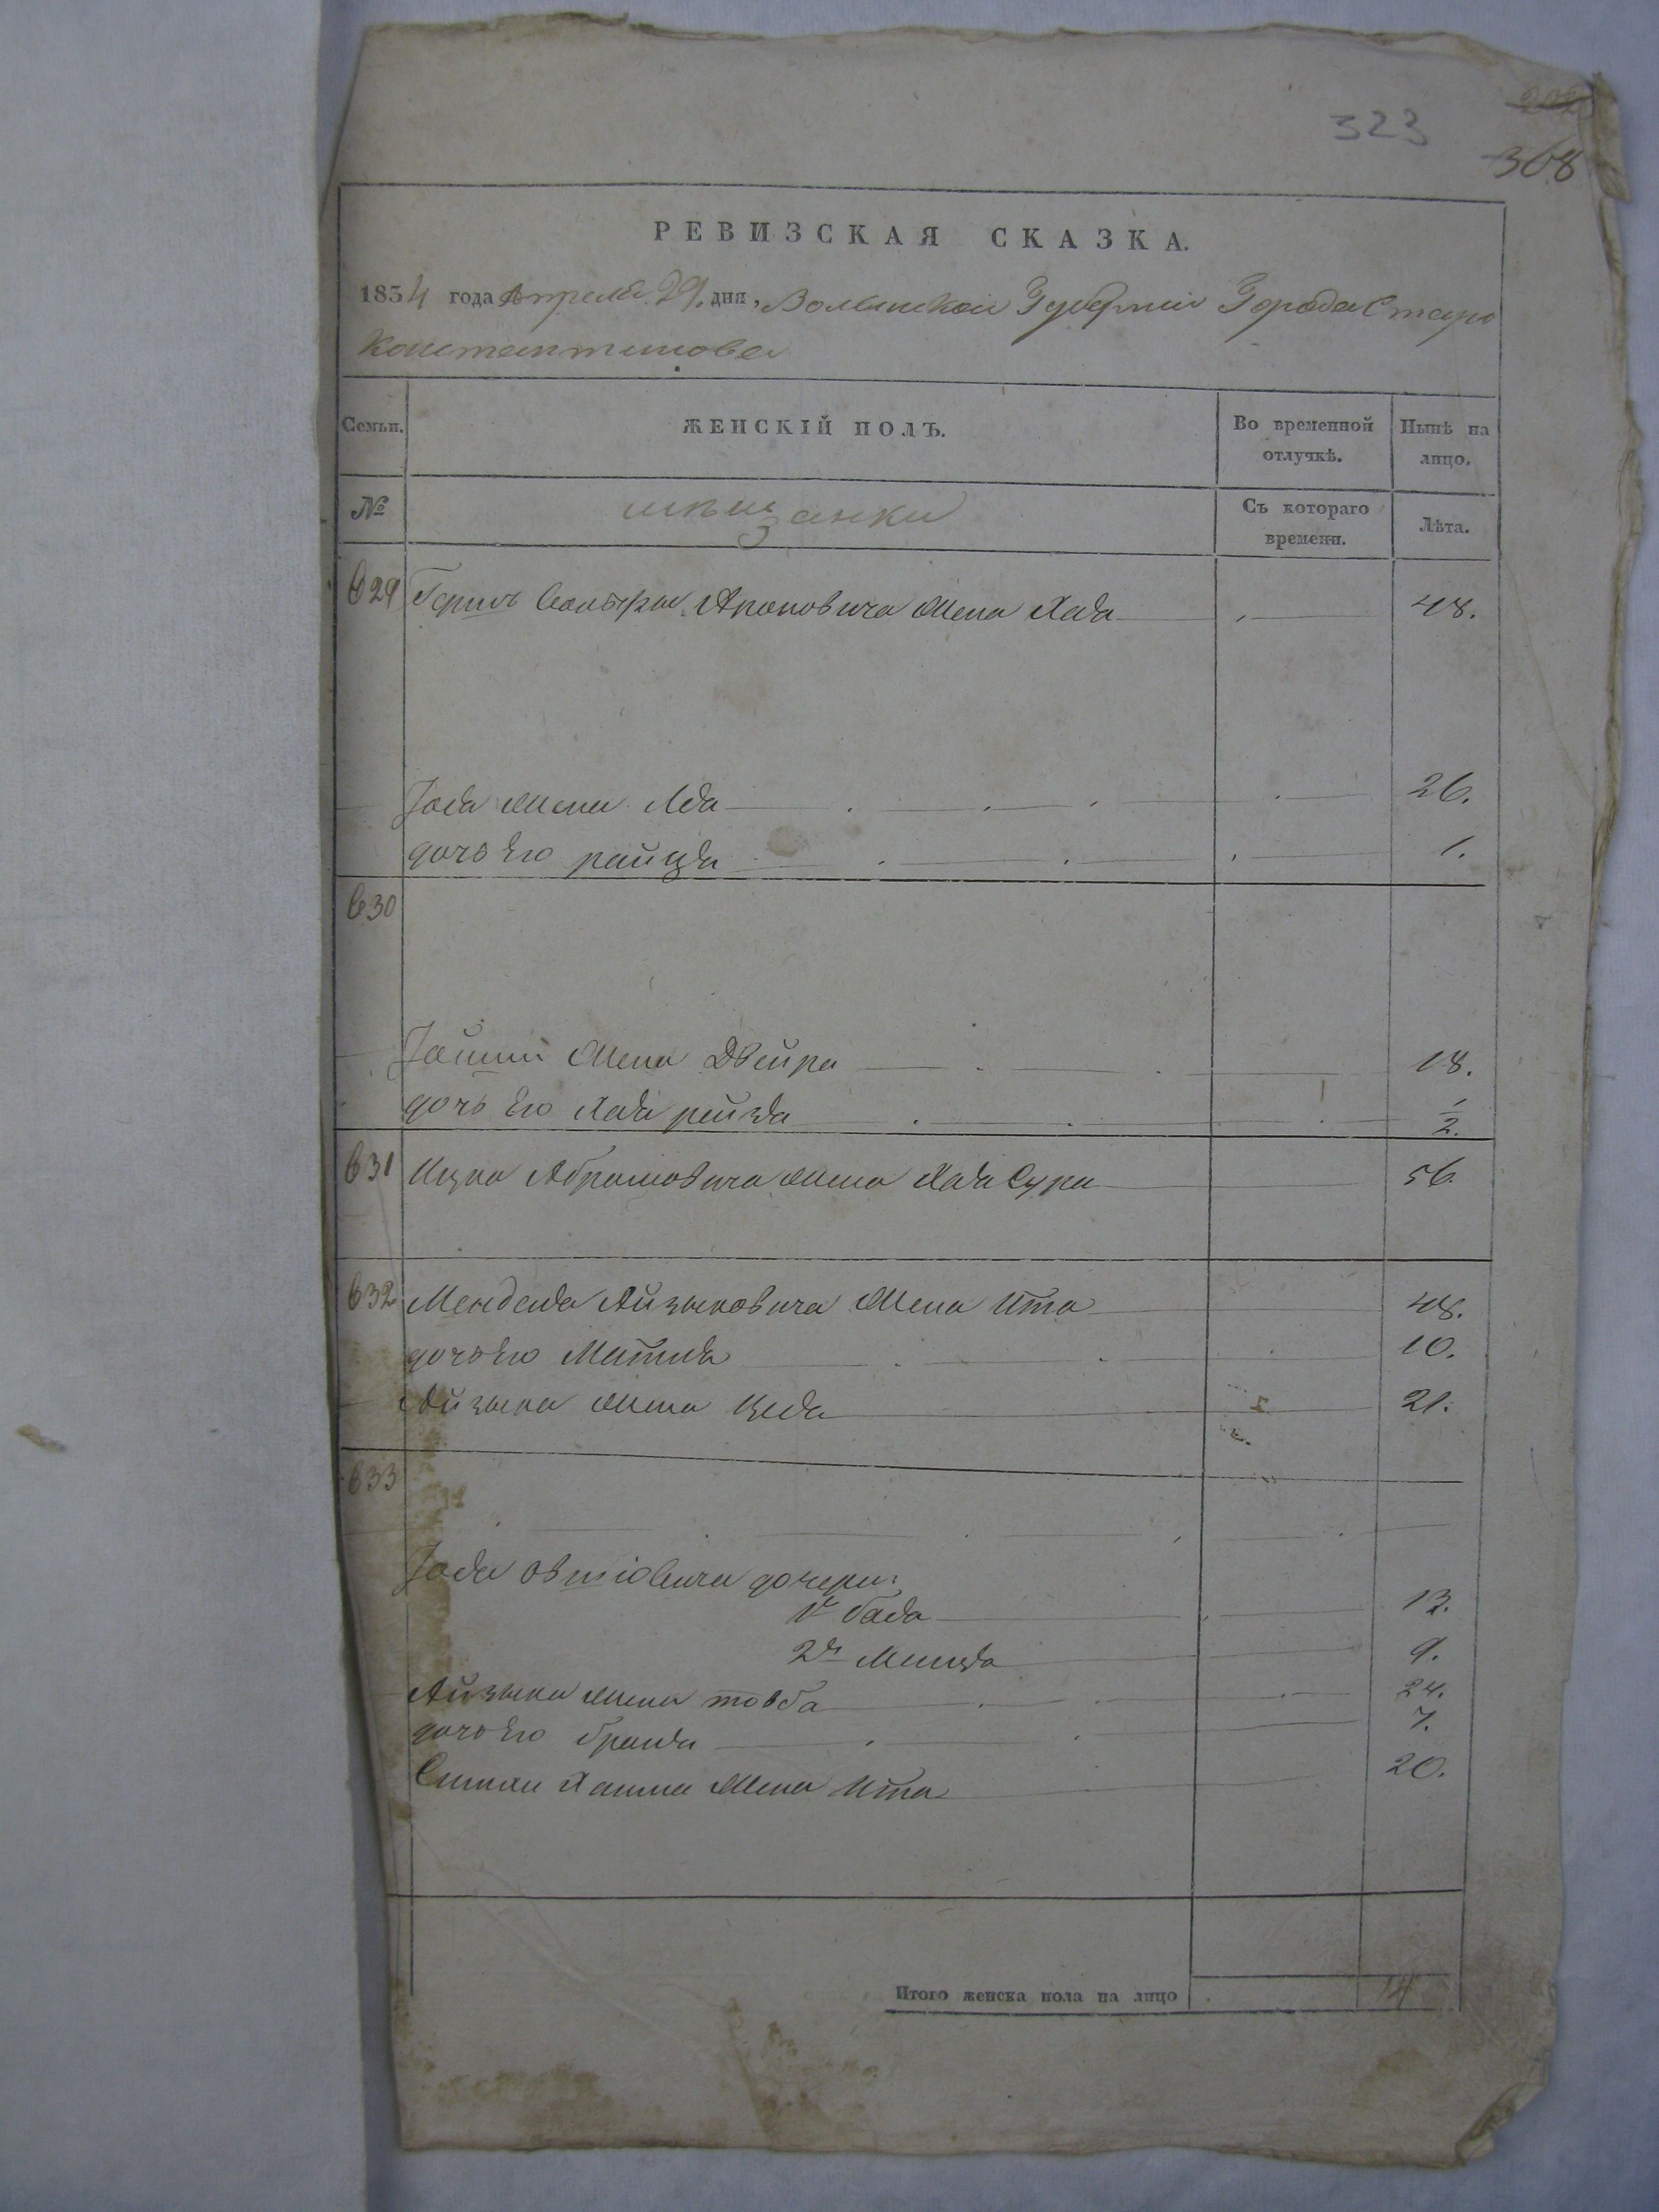 202
323
368
РЕВИЗСКАЯ СКАЗКА.
1854 года Апреля 29. дня, Волынской Губернии Города Старо
константинова
Семьи. ЖЕНСКІЙ ПОЛЪ. Во временной отлучкѣ. Нынѣ на лицо.
№ мѣщанки Съ котораго времени. Лѣта.
629 Герш Ароновича жена Хая 48.
жена 26.
дочь его 1.
630
жена Двейра 18.
дочь его Хая рейзя 1/2.
631 Ицка Абрамовича жена Хая Сура 56.
632 Менделя Айзыковича жена Ита 48.
дочь его 10.
Айзыка жена 21.
633
дочери:
1я бася 13.
2я 9.
Айзыка жена товба 24.
дочь его 7.
жена Ита 20.
Итого женска пола на лицо 14